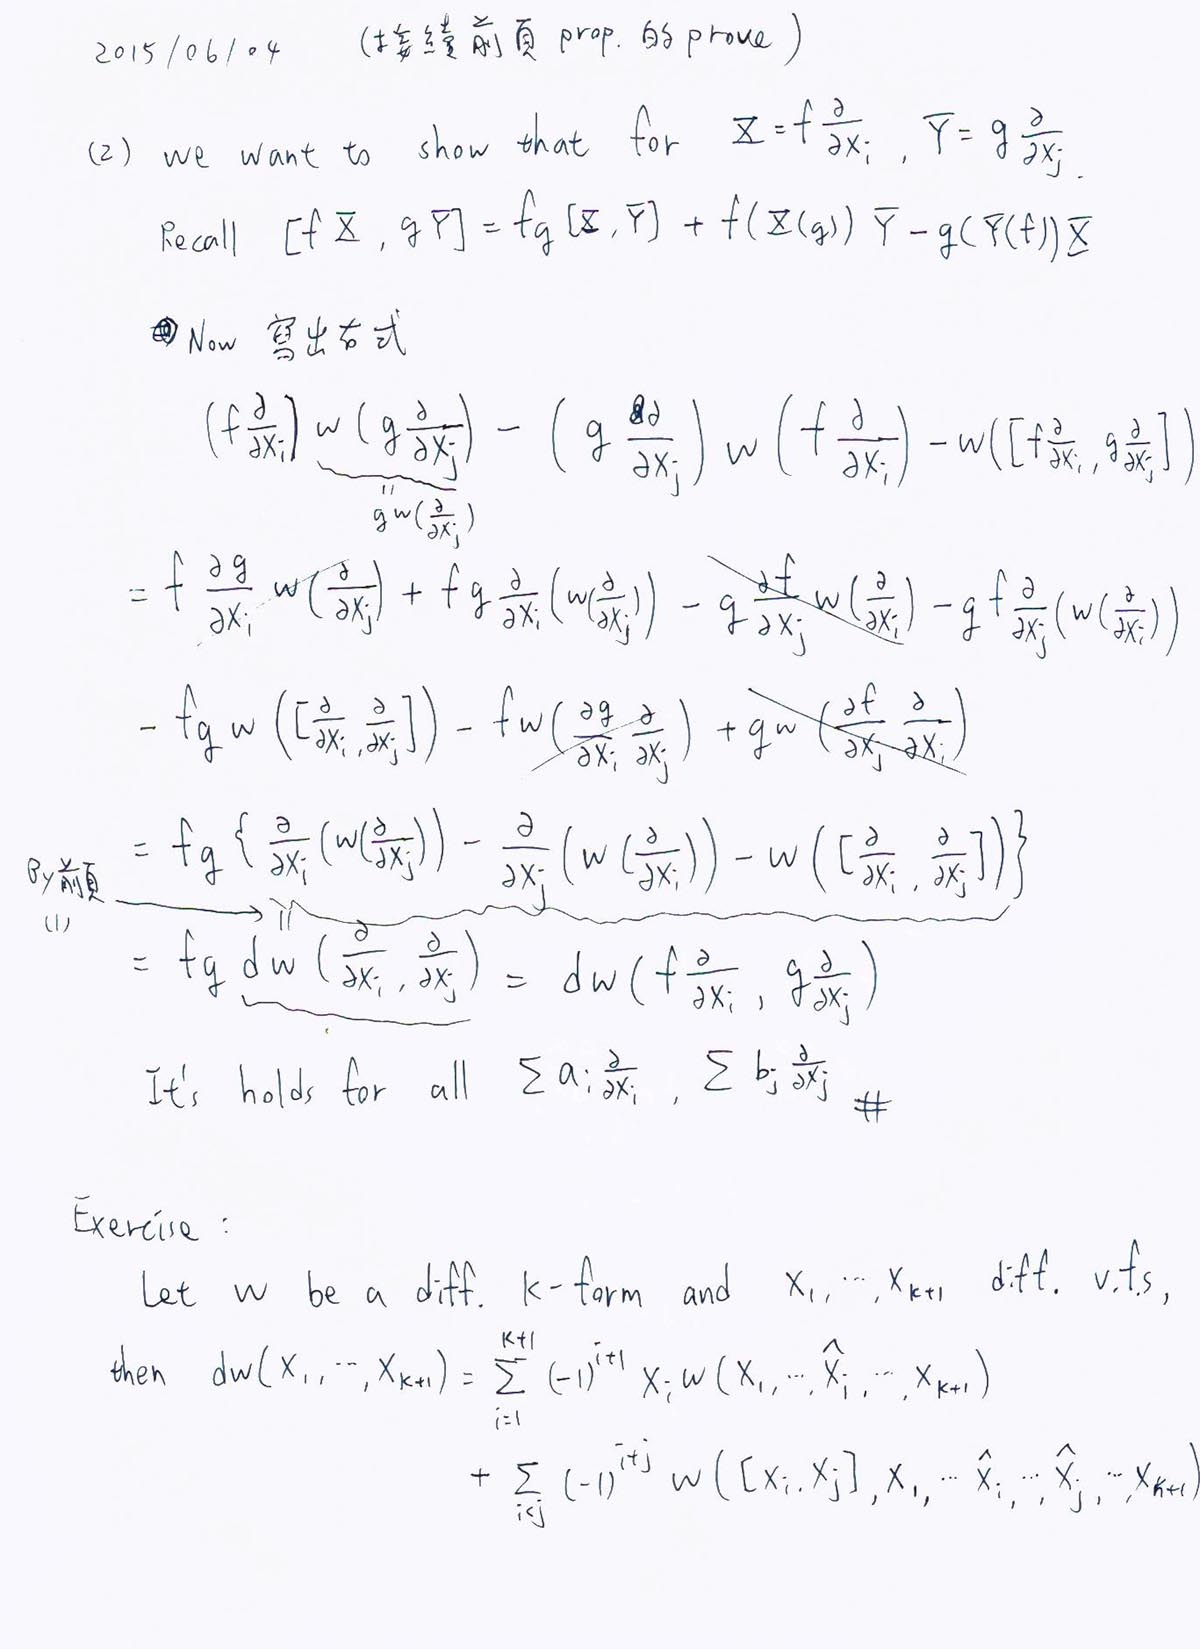 2015/06/04 (接續前頁 prop. 的 prove)
(2) we want to show that for X = f ∂/∂x_i , Y = g ∂/∂x_j .
Recall [f X , g Y] = fg [X, Y] + f(X(g)) Y − g(Y(f)) X
Now 寫出右式
(f ∂/∂x_i) w (g ∂/∂x_j) − (g ∂/∂x_j) w (f ∂/∂x_i) − w([f ∂/∂x_i , g ∂/∂x_j])
= g w(∂/∂x_j)
= f ∂g/∂x_i w(∂/∂x_j) + f g ∂/∂x_i (w(∂/∂x_j)) − g ∂f/∂x_j w(∂/∂x_i) − g f ∂/∂x_j (w(∂/∂x_i))
− fg w ([∂/∂x_i , ∂/∂x_j]) − f w(∂g/∂x_i ∂/∂x_j) + g w (∂f/∂x_j ∂/∂x_i)
= fg { ∂/∂x_i (w(∂/∂x_j)) − ∂/∂x_j (w(∂/∂x_i)) − w([∂/∂x_i , ∂/∂x_j]) }
By 前頁
(1)
= fg dw (∂/∂x_i , ∂/∂x_j) = dw (f ∂/∂x_i , g ∂/∂x_j)
It's holds for all Σ a_i ∂/∂x_i , Σ b_j ∂/∂x_j #
Exercise :
Let w be a diff. k-form and X_1, ⋯, X_{k+1} diff. v.f.s,
then dw(X_1, ⋯, X_{k+1}) = Σ_{i=1}^{k+1} (-1)^{i+1} X_i w (X_1, ⋯, X̂_i, ⋯, X_{k+1})
+ Σ_{i<j} (-1)^{i+j} w ([X_i . X_j], X_1, ⋯ X̂_i, ⋯, X̂_j, ⋯, X_{k+1})